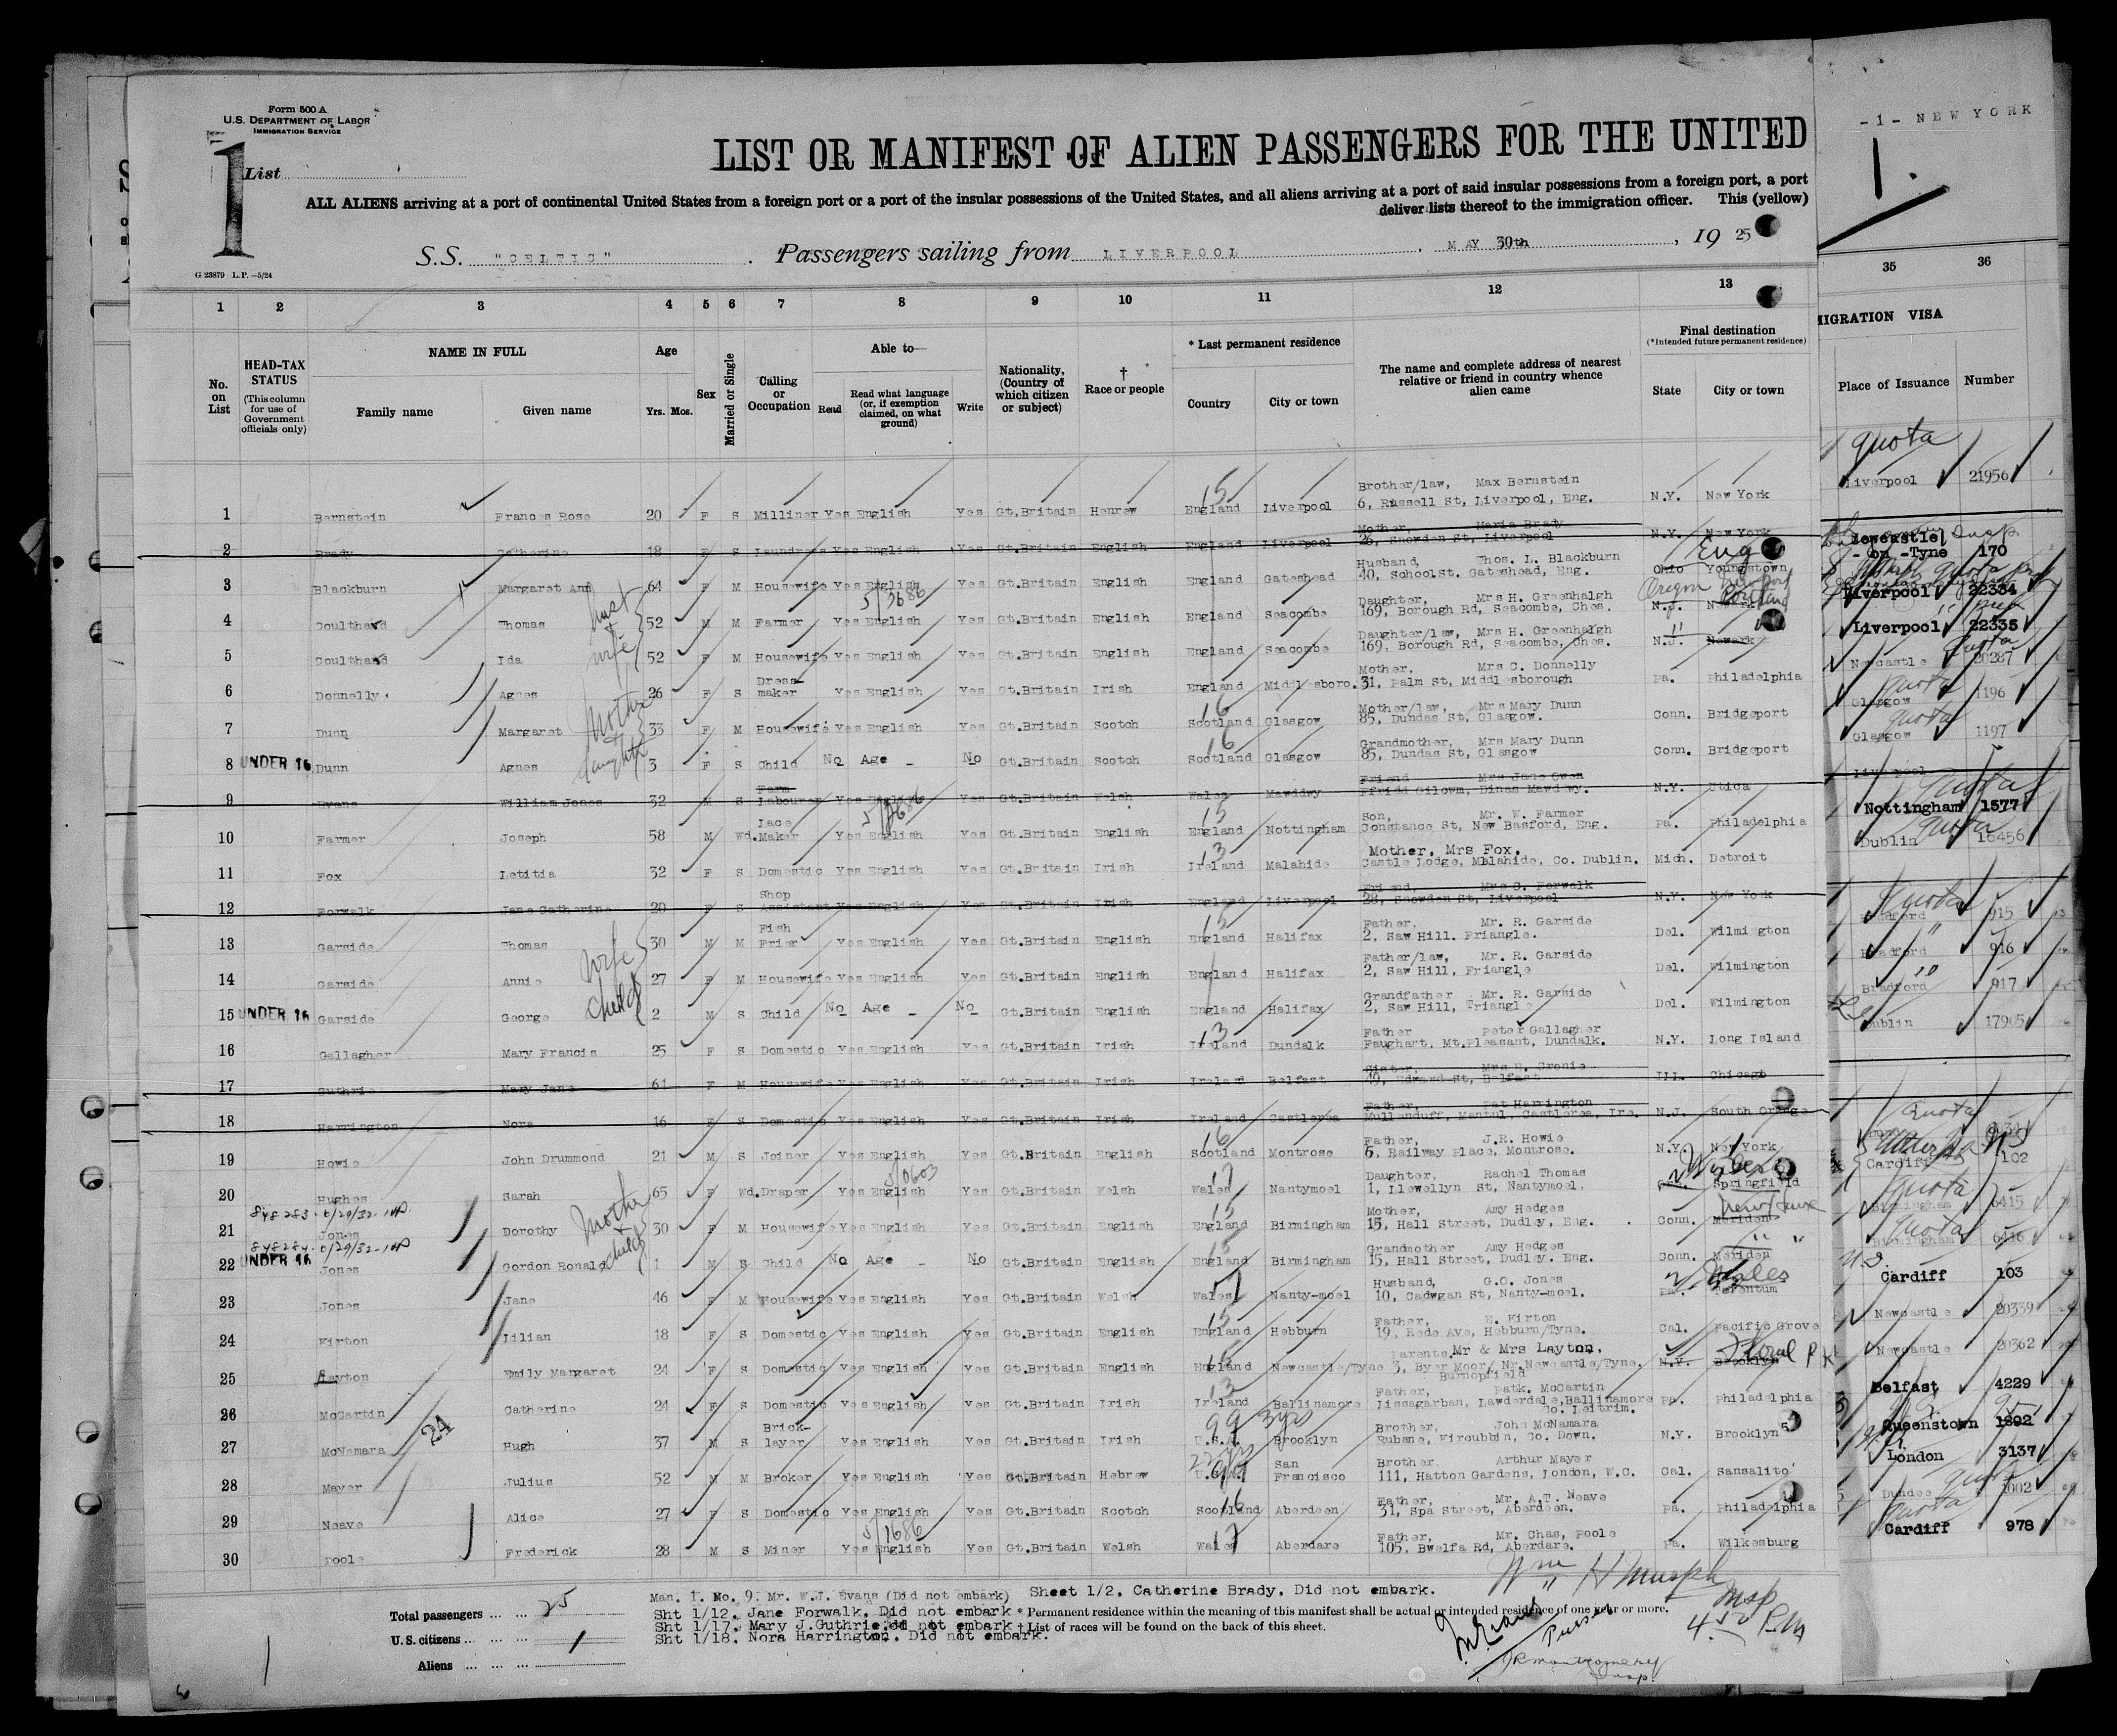 Form 500 A
U.S. DEPARTMENT OF LABOR
IMMIGRATION SERVICE
1
List
- 1 - NEW YORK
1.
LIST OR MANIFEST OF ALIEN PASSENGERS FOR THE UNITED
ALL ALIENS arriving at a port of continental United States from a foreign port or a port of the insular possessions of the United States, and all aliens arriving at a port of said insular possessions from a foreign port, a port
deliver lists thereof to the immigration officer. This (yellow)
S.S. "CELTIC" . Passengers sailing from LIVERPOOL . MAY 30th , 19 25
G 23879 L.P.—5/24
1 2 3 4 5 6 7 8 9 10 11 12 13 35 36
No. on List
HEAD-TAX STATUS (This column for use of Government officials only)
NAME IN FULL
Family name Given name
Age
Yrs. Mos.
Sex
Married or Single
Calling or Occupation
Able to—
Read Read what language (or, if exemption claimed, on what ground) Write
Nationality. (Country of which citizen or subject)
† Race or people
* Last permanent residence
Country City or town
The name and complete address of nearest relative or friend in country whence alien came
Final destination
(*Intended future permanent residence)
State City or town
MIGRATION VISA
Place of Issuance Number
quota
1 Bernstein Frances Rose 20 F S Milliner Yes English Yes Gt.Britain Henrew 15 England Liverpool Brother/law, Max Bernstein 6, Russell St, Liverpool, Eng. N.Y. New York Liverpool 21956
2 Brady Catherine 18 F S Laundress Yes English Yes Gt.Britain English England Liverpool Mother, Maria Brady 26, Snowden St, Liverpool N.Y. New York
3 Blackburn Margaret Ann 64 F M Housewife Yes English Yes Gt.Britain English England Gateshead Husband, Thos. L. Blackburn 40, School St. Gateshead, Eng. Ohio Youngstown Eng Newcastle - on -Tyne 170
4 Coulthard Thomas 52 M M Farmer Yes English 5/3686 Yes Gt.Britain English England Seacombe Daughter, Mrs H. Greenhalgh 169, Borough Rd, Seacombe, Ches. N.J. Oregon Portland Liverpool 22334
5 Coulthard Ida 52 F M Housewife Yes English Yes Gt.Britain English England Seacombe Daughter/law, Mrs H. Greenhalgh 169, Borough Rd, Seacombe, Ches. N.J. Newark Liverpool 22335
6 Donnelly Agnes 26 F S Dress-maker Yes English Yes Gt.Britain Irish England Middlesboro. Mother, Mrs C. Donnelly 31, Palm St, Middlesborough Pa. Philadelphia Newcastle 20287 quota
7 Dunn Margaret 33 F M Housewife Yes English Yes Gt.Britain Scotch 16 Scotland Glasgow Mother/law, Mrs Mary Dunn 85, Dundas St, Glasgow. Conn. Bridgeport Glasgow 1196 quota
8 UNDER 16 Dunn Agnes 3 F S Child No Age - No Gt.Britain Scotch 16 Scotland Glasgow Grandmother, Mrs Mary Dunn 85, Dundas St, Glasgow Conn. Bridgeport Glasgow 1197 quota
9 Evans William Jones 32 M S Farm Labourer Yes English Yes Gt.Britain Welsh Wales Mawddwy Friend Mrs Jane Owen Ffridd Gilowm, Dinas Mawddwy. N.Y. Utica Liverpool
10 Farmer Joseph 58 M Wd. Lace Maker Yes English 5/3686 Yes Gt.Britain English 15 England Nottingham Son, Mr. W. Farmer Constance St, New Basford, Eng. Pa. Philadelphia Nottingham 1577 quota
11 Fox Letitia 32 F S Domestic Yes English Yes Gt.Britain Irish 13 Ireland Malahide Mother, Mrs Fox, Castle Lodge, Malahide, Co. Dublin. Mich. Detroit Dublin 16456 quota
12 Forwalk Jane Catherine 20 F S Shop Assistant Yes English Yes Gt.Britain Irish England Liverpool Friend, Mrs C. Forwalk 28, Snowden St, Liverpool N.Y. New York
13 Garside Thomas 30 M M Fish Frier Yes English Yes Gt.Britain English 15 England Halifax Father, Mr. R. Garside 2, Saw Hill. Friangle. Del. Wilmington Bradford 915 quota
14 Garside Annie wife 27 F M Housewife Yes English Yes Gt.Britain English England Halifax Father/law, Mr. R. Garside 2, Saw Hill, Friangle Del. Wilmington Bradford 916 "
15 UNDER 16 Garside George child 2 M S Child No Age - No Gt.Britain English England Halifax Grandfather Mr. R. Garside 2, Saw Hill, Triangle Del. Wilmington Bradford 917 "
16 Gallagher Mary Francis 25 F S Domestic Yes English Yes Gt.Britain Irish 13 Ireland Dundalk Father Peter Gallagher Faughart, Mt.Pleasant, Dundalk. N.Y. Long Island Dublin 17905
17 Guthrie Mary Jane 61 F M Housewife Yes English Yes Gt.Britain Irish Ireland Belfast Sister, Mrs E. Cronie 49, Edward St, Belfast Ill. Chicago
18 Harrington Nora 16 F S Domestic Yes English Yes Gt.Britain Irish Ireland Castlerea Father, Pat Harrington Mullenduff, Mantul, Castlerea, Ire. N.J. South Orange
19 Howie John Drummond 21 M S Joiner Yes English Yes Gt.Britain English 16 Scotland Montrose Father, J.R. Howie 6, Railway Place, Montrose. N.Y. New York quota
20 Hughes Sarah 65 F Wd. Draper Yes English 5/0603 Yes Gt.Britain Welsh 17 Wales Nantymoel Daughter, Rachel Thomas 1, Llewellyn St, Nantymoel. Springfield Wales Cardiff 102
21 848283 - 6/29/32 Jones Dorothy 30 F M Housewife Yes English Yes Gt.Britain English 15 England Birmingham Mother, Amy Hedges 15, Hall Street, Dudley, Eng. Conn. Meriden Birmingham 6415 quota
22 848284 - 6/29/32 UNDER 16 Jones Gordon Ronald 1 M S Child No Age - No Gt.Britain English 15 England Birmingham Grandmother Amy Hedges 15, Hall Street, Dudley. Eng. Conn. Meriden " " Birmingham 6416 quota
23 Jones Jane 46 F M Housewife Yes English Yes Gt.Britain Welsh 17 Wales Nanty-moel Husband, G.O. Jones 10, Cadwgan St, Nanty-moel. Pa. Tarentum Wales Cardiff 103
24 Kirton Lilian 18 F S Domestic Yes English Yes Gt.Britain English 15 England Hebburn Father, E. Kirton 19, Rede Ave, Hebburn/Tyne. Cal. Pacific Grove Newcastle 20339
25 Layton Emily Margaret 24 F S Domestic Yes English Yes Gt.Britain English 15 England Newcastle/Tyne Parents, Mr & Mrs Layton. 3, Byer Moor/ Nr.Newcastle/Tyne. Burnopfield N.Y. Brooklyn Floral Pk Newcastle 20362
26 McCartin Catherine 24 F S Domestic Yes English Yes Gt.Britain Irish 13 Ireland Ballinamore Father, Patk. McCartin Lissagarban, Lawderdale, Ballinamore Co. Leitrim. Pa. Philadelphia Belfast 4229
27 McNamara 24 Hugh 37 M S Brick-layer Yes English Yes Gt.Britain Irish 99 3yrs U.S.A. Brooklyn Brother, John McNamara Rubane, Kircubbin, Co. Down. N.Y. Brooklyn Queenstown 1892
28 Mayer Julius 52 M M Broker Yes English Yes Gt.Britain Hebrew 22 yrs San Francisco Brother. Arthur Mayer 111, Hatton Gardens, London, W.C. Cal. Sansalito London 3137
29 Neave Alice 27 F S Domestic Yes English Yes Gt.Britain Scotch 16 Scotland Aberdeen Father, Mr. A.T. Neave 31, Spa Street, Aberdeen. Pa. Philadelphia Dundee 1002 quota
30 Poole Frederick 28 M S Miner Yes English 5/3686 Yes Gt.Britain Welsh 17 Wales Aberdare Father, Mr. Chas, Poole 105, Bwelfa Rd, Aberdare. Pa. Wilkesburg Cardiff 978 quota
Total passengers ... ... 25
U.S. citizens ... ... ...
Aliens ... ... ...
Man. 1. No. 9. Mr. W.J. Evans (Did not embark) Sheet 1/2, Catherine Brady. Did not embark.
Sht 1/12. Jane Forwalk. Did not embark * Permanent residence within the meaning of this manifest shall be actual or intended residence of one year or more.
Sht 1/17. Mary J.Guthrie. Did not embark † List of races will be found on the back of this sheet.
Sht 1/18. Nora Harrington. Did not embark.
Wm H Murphy
Insp
4 50 P.M
Purser
JR Montgomery
Insp.